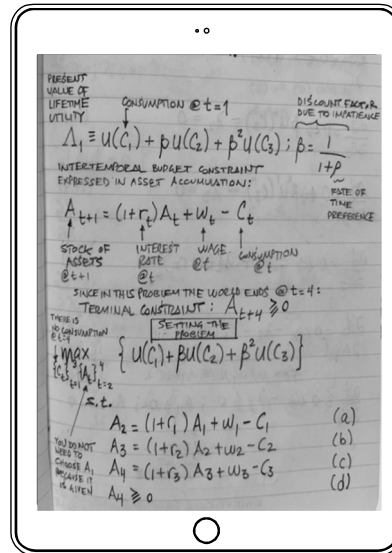 PRESENT
VALUE OF
LIFETIME
UTILITY
CONSUMPTION @ t=1
DISCOUNT FACTOR
DUE TO IMPATIENCE
Λ₁ ≡ U(C₁) + βU(C₂) + β²U(C₃) ; β = 1/(1+ρ)
RATE OF
TIME
PREFERENCE
INTERTEMPORAL BUDGET CONSTRAINT
EXPRESSED IN ASSET ACCUMULATION:
A_{t+1} = (1+r_t)A_t + w_t - C_t
STOCK OF
ASSETS
@t+1
INTEREST
RATE
@t
WAGE
@t
CONSUMPTION
@t
SINCE IN THIS PROBLEM THE WORLD ENDS @ t=4:
TERMINAL CONSTRAINT: A_{t+4} ⩾ 0
SETTING THE
PROBLEM
THERE IS
NO CONSUMPTION
@ t=4
max {U(C₁) + βU(C₂) + β²U(C₃)}
{C_t}³_{t=1} {A_t}⁴_{t=2}
s.t.
A₂ = (1+r₁) A₁ + w₁ - C₁ (a)
A₃ = (1+r₂) A₂ + w₂ - C₂ (b)
A₄ = (1+r₃) A₃ + w₃ - C₃ (c)
A₄ ⩾ 0 (d)
YOU DO NOT
NEED TO
CHOOSE A₁
BECAUSE IT
IS GIVEN